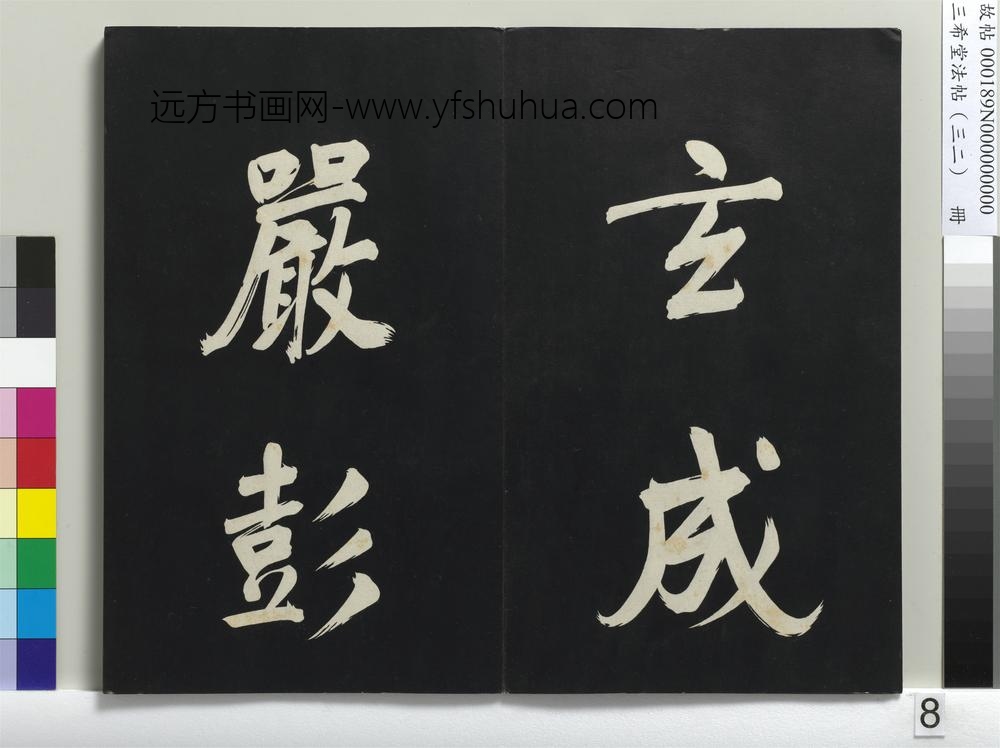 玄成
嚴彭
远方书画网-www.yfshuhua.com
故帖 000189N000000000
三希堂法帖（三二） 冊
8